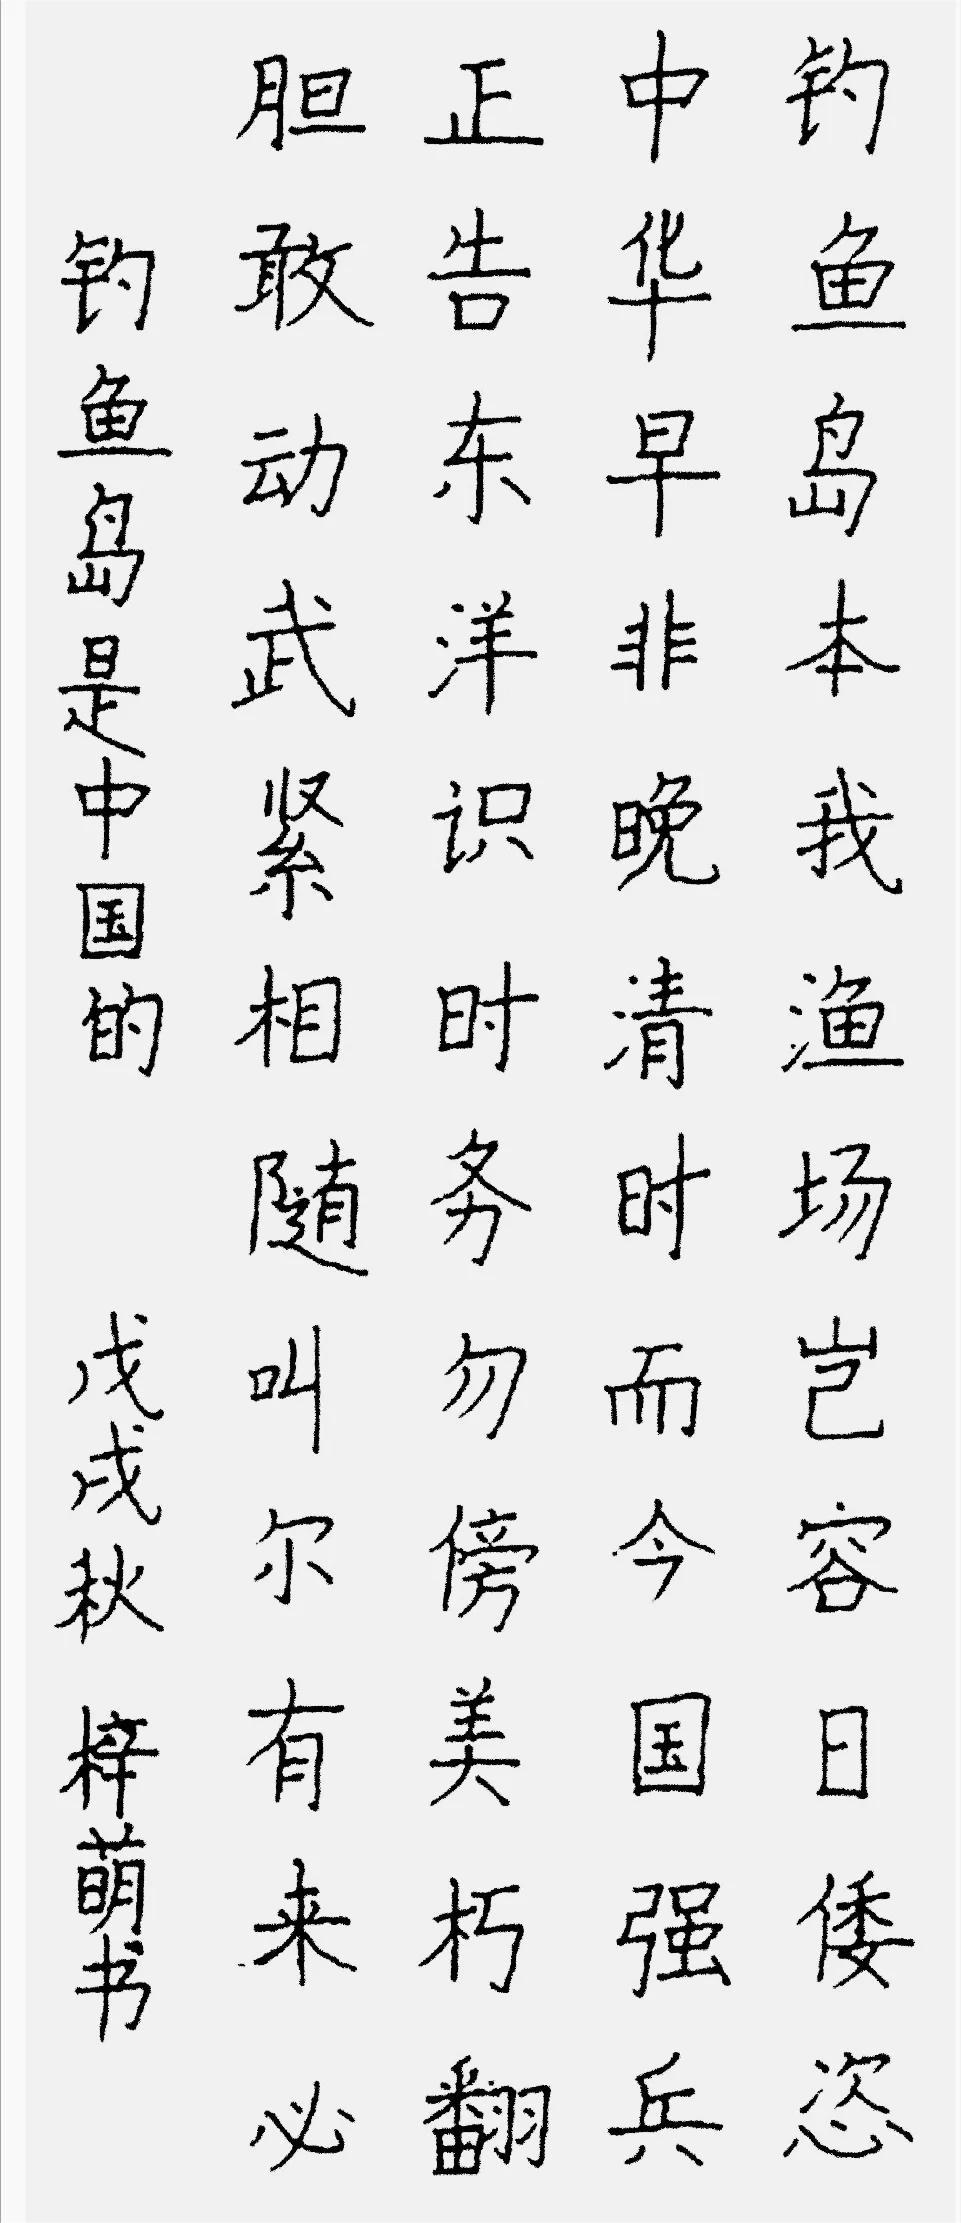 钓鱼岛本我渔场岂容日倭恣
中华早非晚清时而今国强兵
正告东洋识时务勿傍美朽翻
胆敢动武紧相随叫尔有来必
钓鱼岛是中国的 戊戌秋 梓萌书